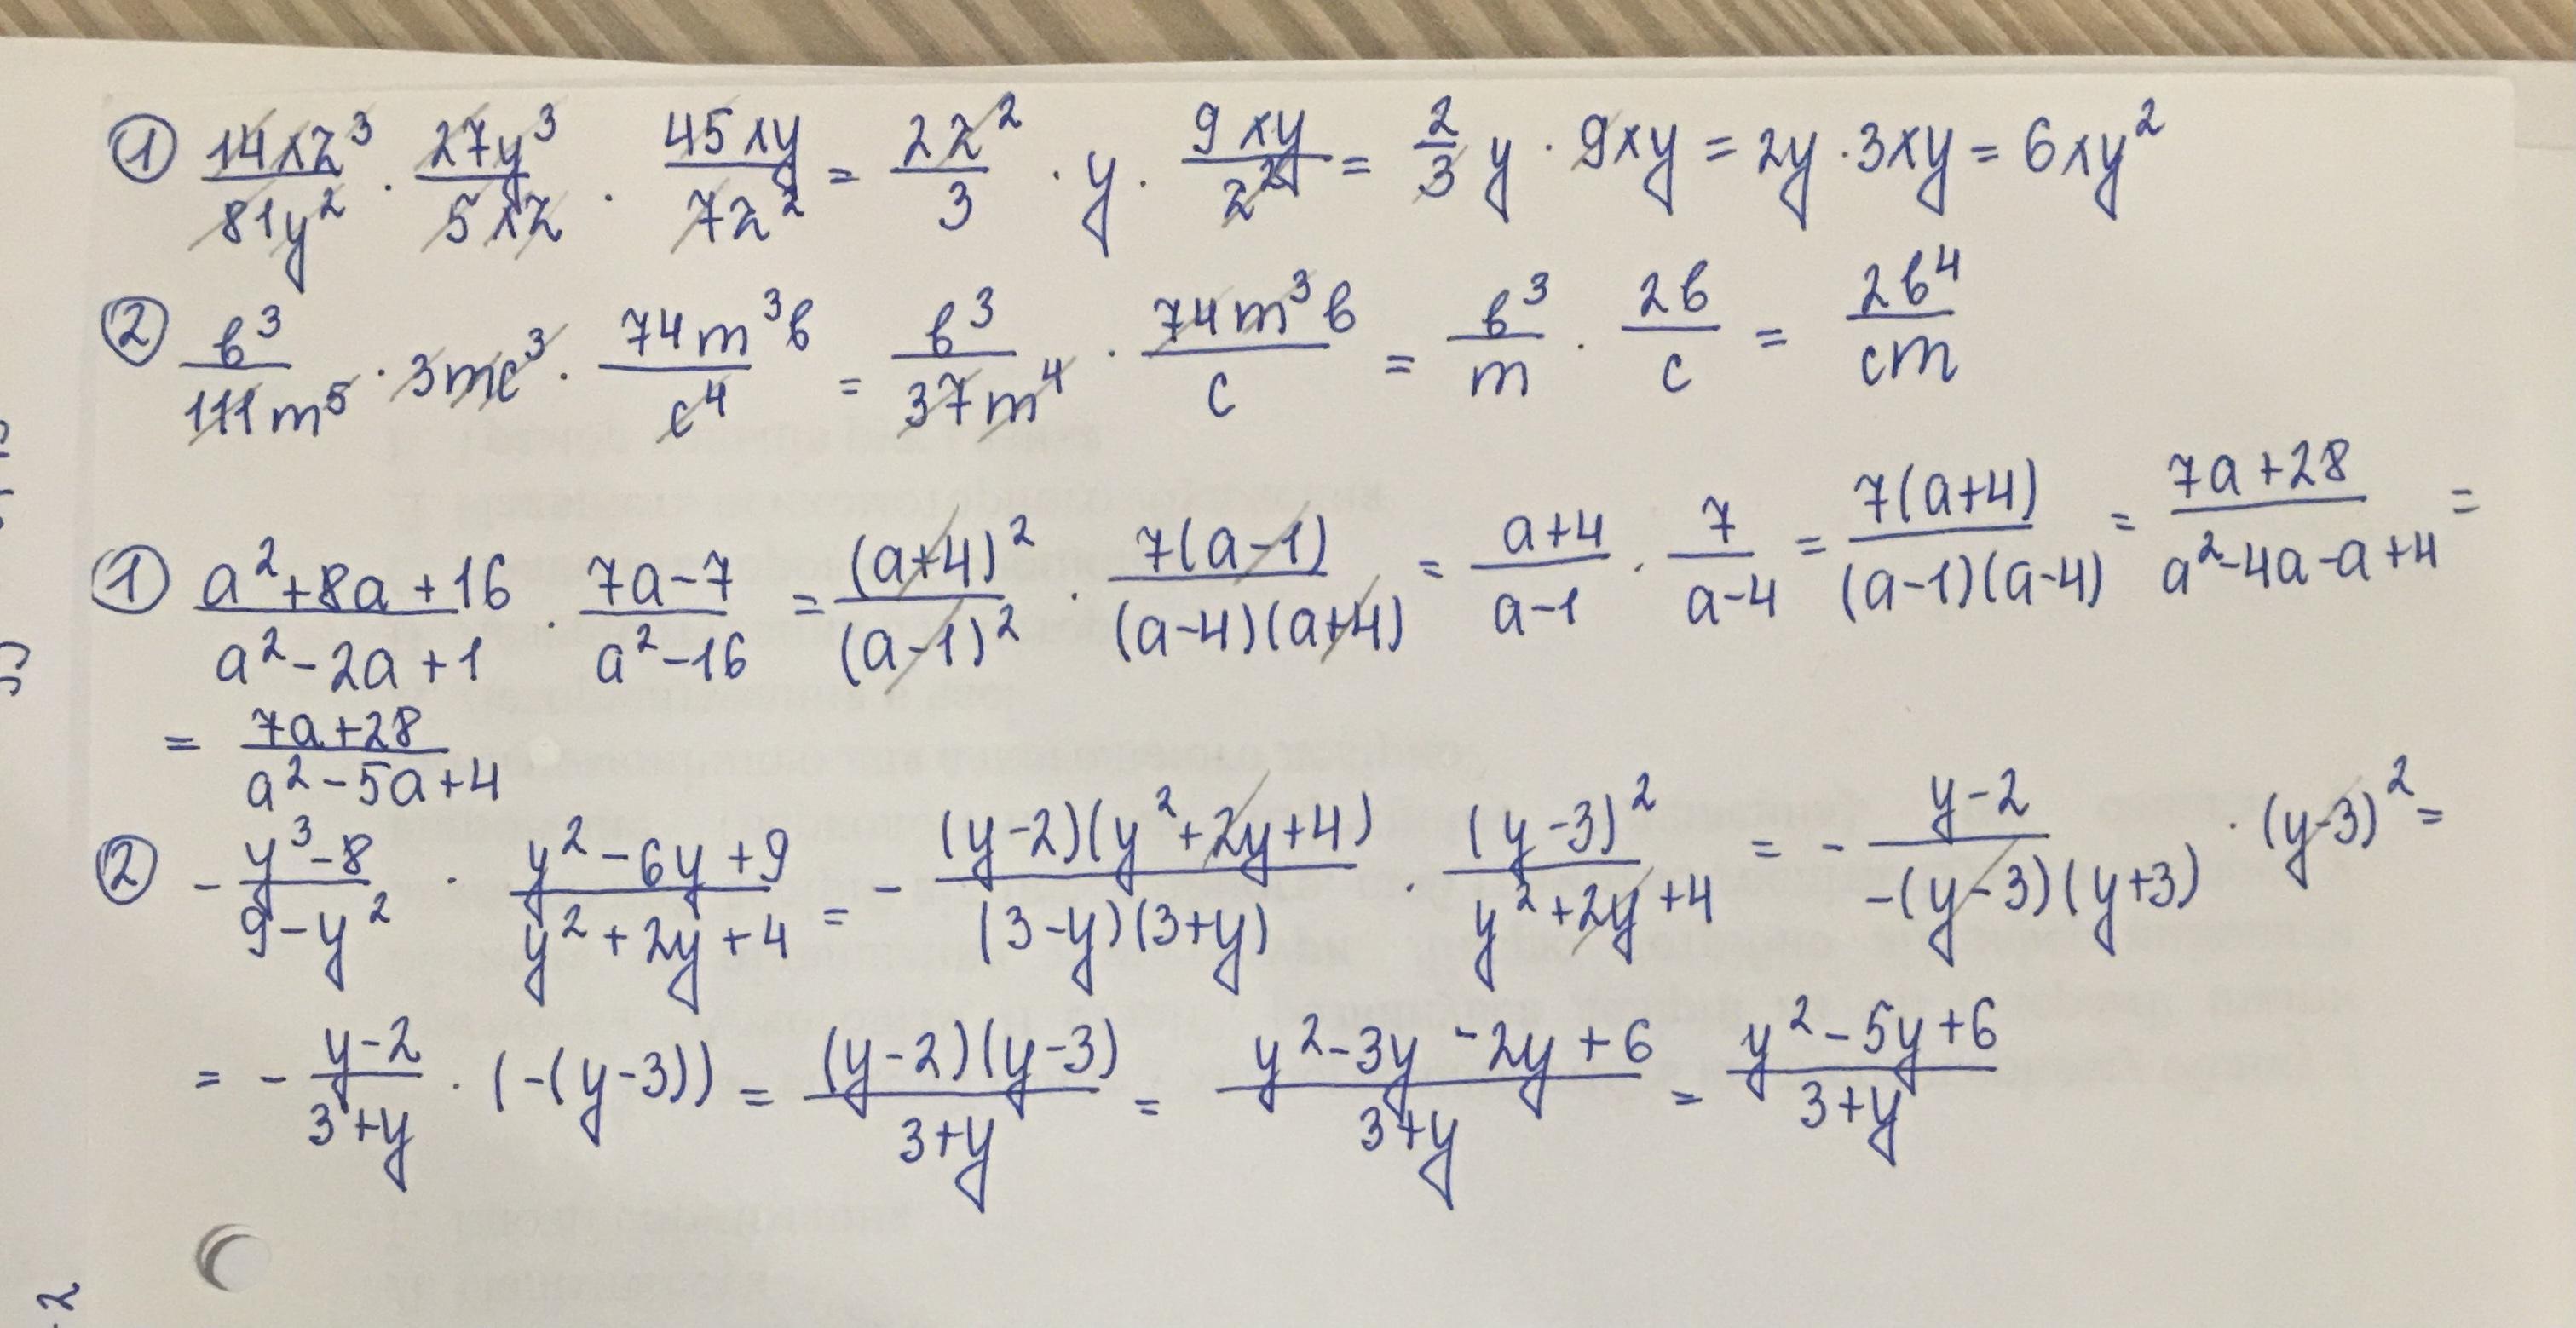 ① 14xz³/81y² · 27y³/5xz · 45xy/7z² = 2z²/3 · y · 9xy/z² = 2/3 y · 9xy = 2y · 3xy = 6xy²
② b³/111m⁵ · 3mc³ · 74m³b/c⁴ = b³/37m⁴ · 74m³b/c = b³/m · 2b/c = 2b⁴/cm
① a²+8a+16/a²-2a+1 · 7a-7/a²-16 = (a+4)²/(a-1)² · 7(a-1)/(a-4)(a+4) = a+4/a-1 · 7/a-4 = 7(a+4)/(a-1)(a-4) = 7a+28/a²-4a-a+4 =
= 7a+28/a²-5a+4
② - y³-8/9-y² · y²-6y+9/y²+2y+4 = - (y-2)(y²+2y+4)/(3-y)(3+y) · (y-3)²/y²+2y+4 = - y-2/-(y-3)(y+3) · (y-3)² =
= - y-2/3+y · (-(y-3)) = (y-2)(y-3)/3+y = y²-3y-2y+6/3+y = y²-5y+6/3+y